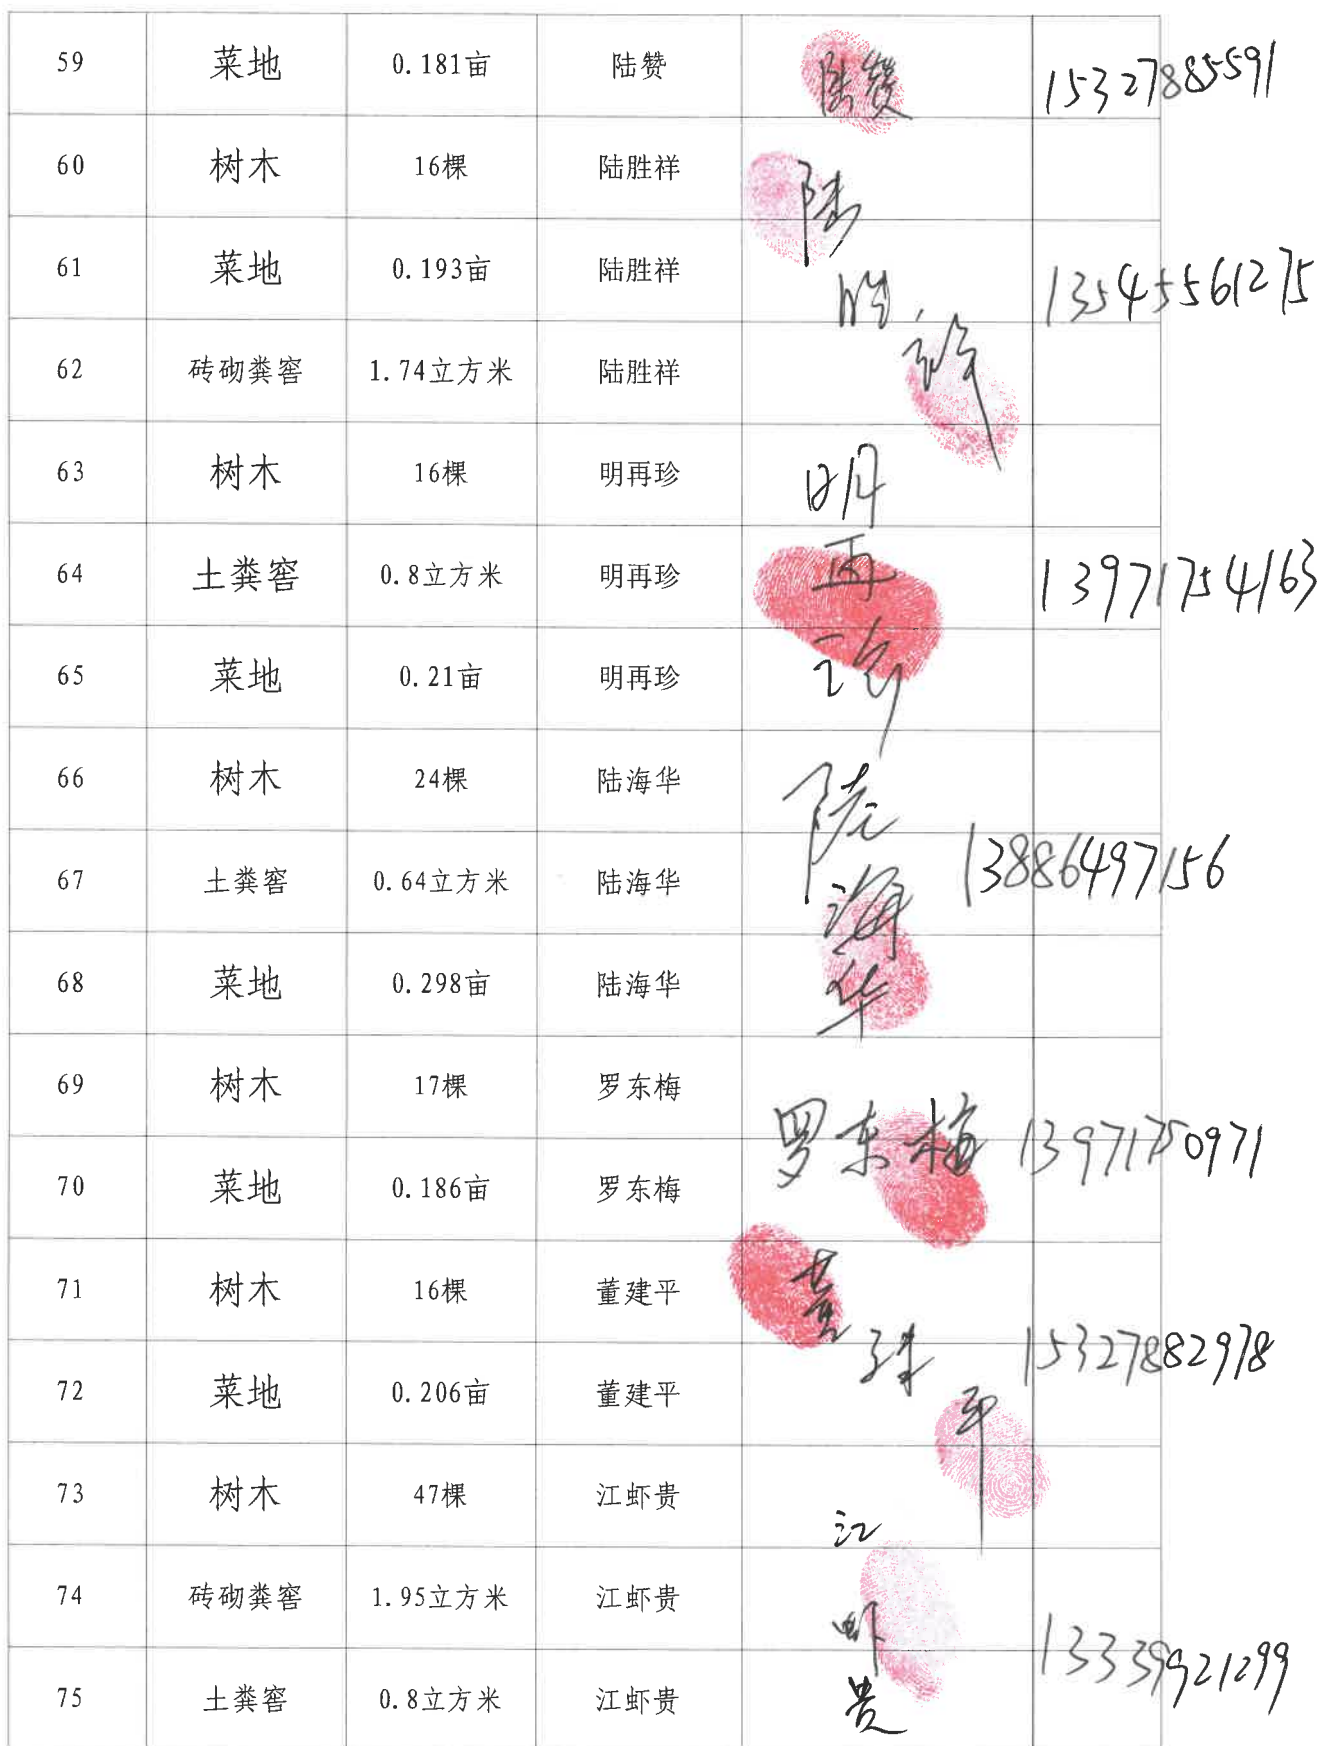 59 菜地 0.181亩 陆赞 陆赞 15327885591
60 树木 16棵 陆胜祥 陆
61 菜地 0.193亩 陆胜祥 胜 13545561275
62 砖砌粪窖 1.74立方米 陆胜祥 祥
63 树木 16棵 明再珍 明
64 土粪窖 0.8立方米 明再珍 再 13971754163
65 菜地 0.21亩 明再珍 珍
66 树木 24棵 陆海华 陆
67 土粪窖 0.64立方米 陆海华 海 13886497156
68 菜地 0.298亩 陆海华 华
69 树木 17棵 罗东梅 罗东梅 13971750971
70 菜地 0.186亩 罗东梅
71 树木 16棵 董建平 董
72 菜地 0.206亩 董建平 建平 15327882978
73 树木 47棵 江虾贵 江
74 砖砌粪窖 1.95立方米 江虾贵 虾 13339921299
75 土粪窖 0.8立方米 江虾贵 贵